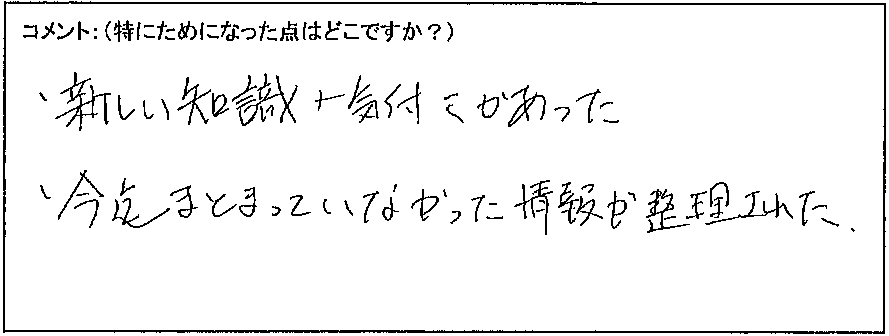 コメント：（特にためになった点はどこですか？）
、新しい知識+気付きがあった
、今迄まとまっていなかった情報が整理された、